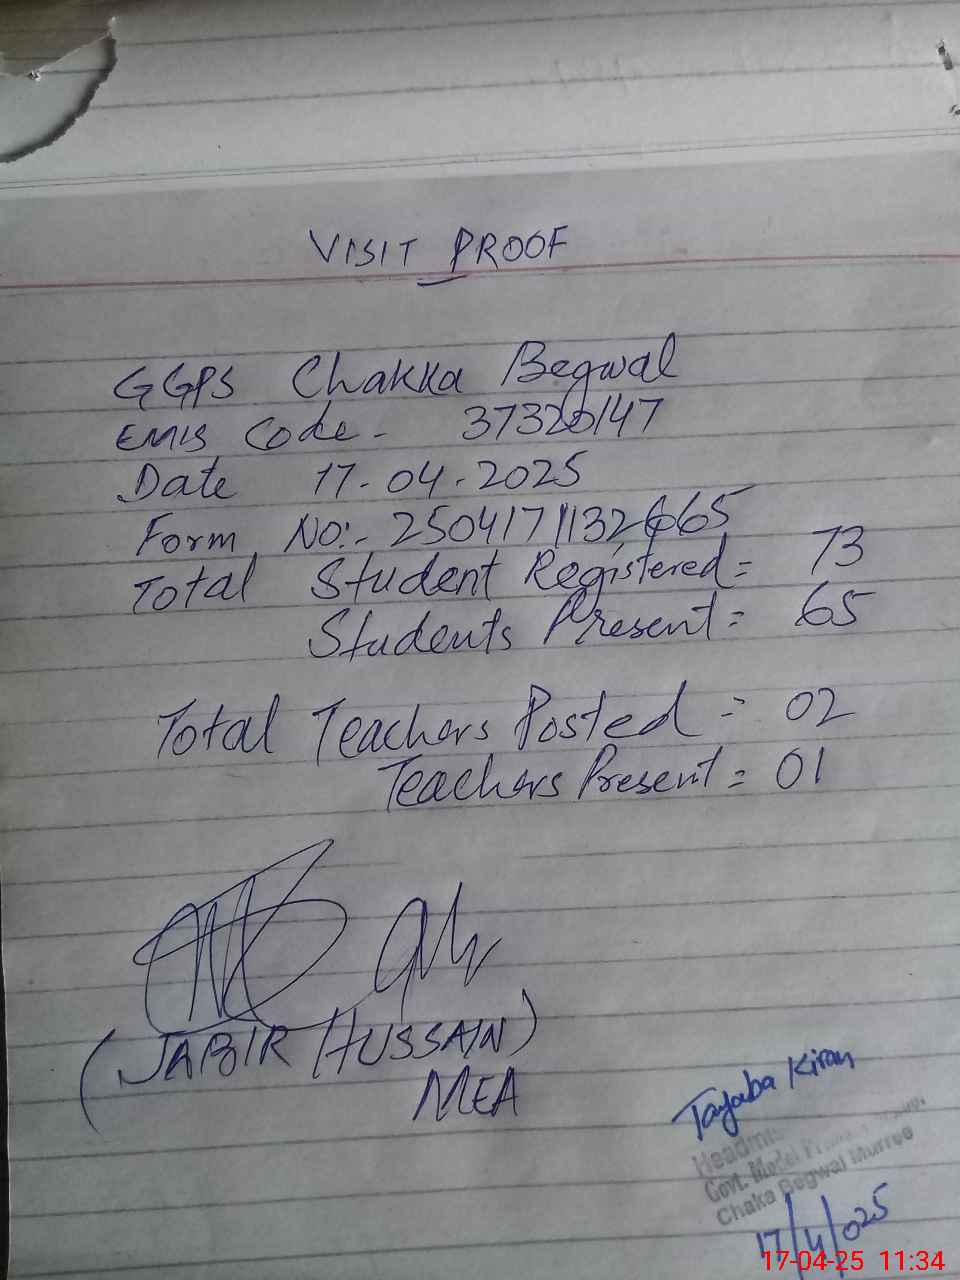 VISIT PROOF
GGPS Chakka Begwal
EMIS Code - 37320147
Date 17.04.2025
Form No:. 2504171132665
Total Student Registered = 73
Students Present = 65
Total Teachers Posted = 02
Teachers Present = 01
(JABIR HUSSAIN)
MEA
Tayaba Kiran
Govt. Model
Chaka Begwal Murree
17/4/025
17-04-25 11:34